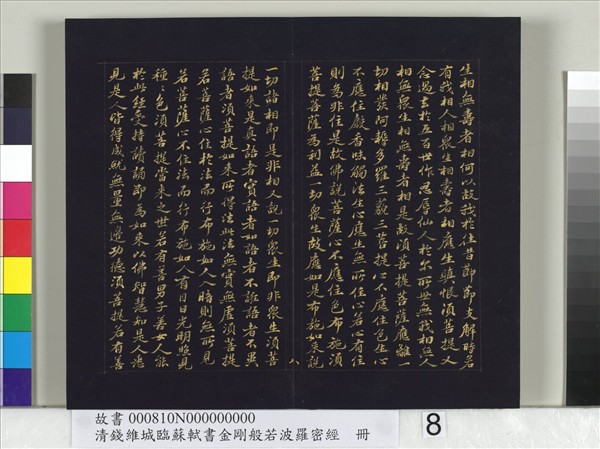 生相無壽者相何以故我於往昔節節支解時若
有我相人相眾生相壽者相應生瞋恨須菩提又
念過去於五百世作忍辱仙人於尒所世無我相無人
相無眾生相無壽者相是故須菩提菩薩應離一
切相發阿耨多羅三藐三菩提心不應住色生心
不應住聲香味觸法生心應生無所住心若心有住
則為非住是故佛說菩薩心不應住色布施須
菩提菩薩為利益一切眾生故應如是布施如來說
八
一切諸相即是非相又說一切眾生即非眾生須菩
提如來是真語者實語者如語者不誑語者不異
語者須菩提如來所得法此法無實無虛須菩提
若菩薩心住於法而行布施如人入暗則無所見
若菩薩心不住法而行布施如人有目日光明照見
種種色須菩提當來之世若有善男子善女人能
於此經受持讀誦即為如來以佛智慧悉知是人悉
見是人皆得成就無量無邊功德須菩提若有善
故書 000810N000000000
清錢維城臨蘇軾書金剛般若波羅密經 冊
8